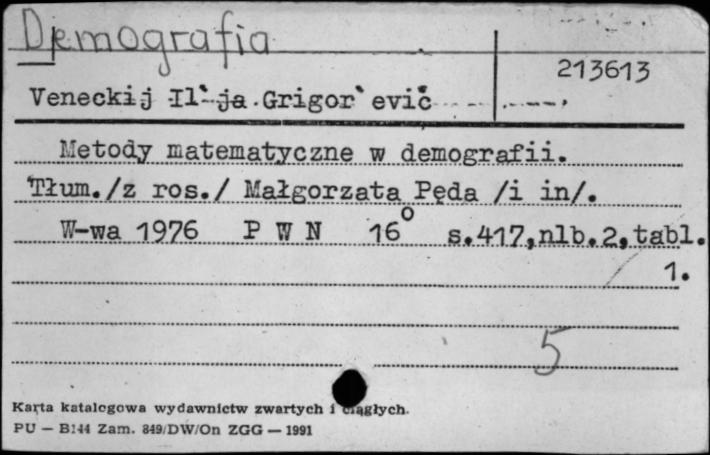 Demografia
213613
Veneckij Il`ja Grigor`evič
Metody matematyczne w demografii.
Tłum./z ros./ Małgorzata Pęda /i in/.
W-wa 1976 P W N 16° s.417,nlb.2,tabl.
1.
5
Karta katalogowa wydawnictw zwartych i ciągłych.
PU — B144 Zam. 849/DW/On ZGG — 1991